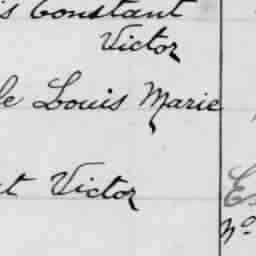 is Constant
Victor
le Louis Marie
t Victor
No